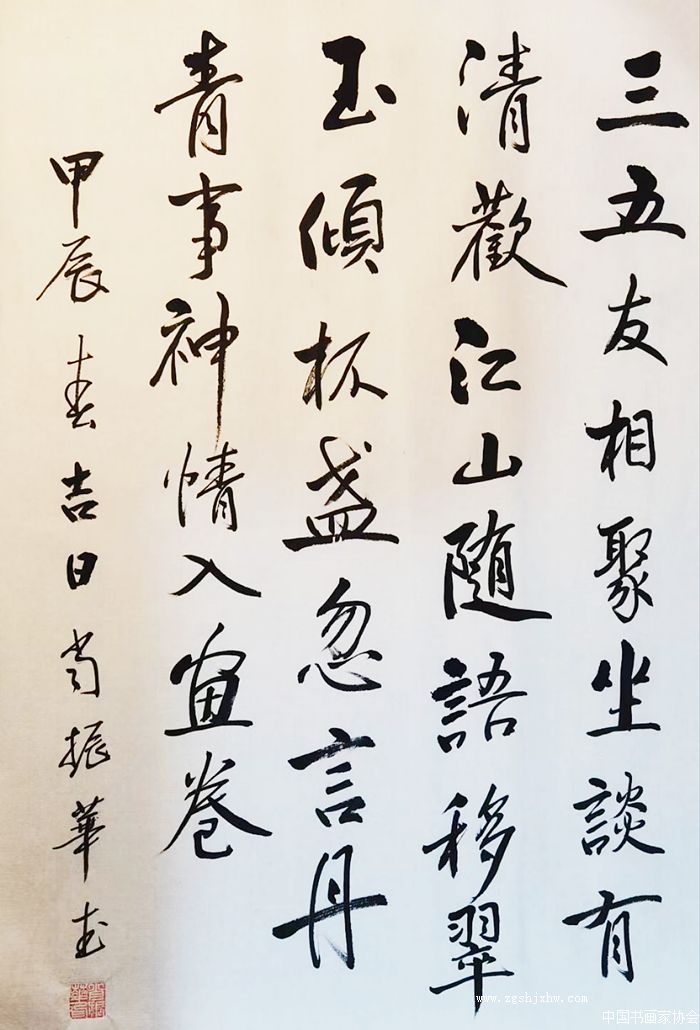 三五友相聚坐談有
清歡江山随語移翠
玉傾杯盏忽言丹
青事神情入画卷
甲辰春吉日尚振華书
www.zgshjxhw.com
中国书画家协会